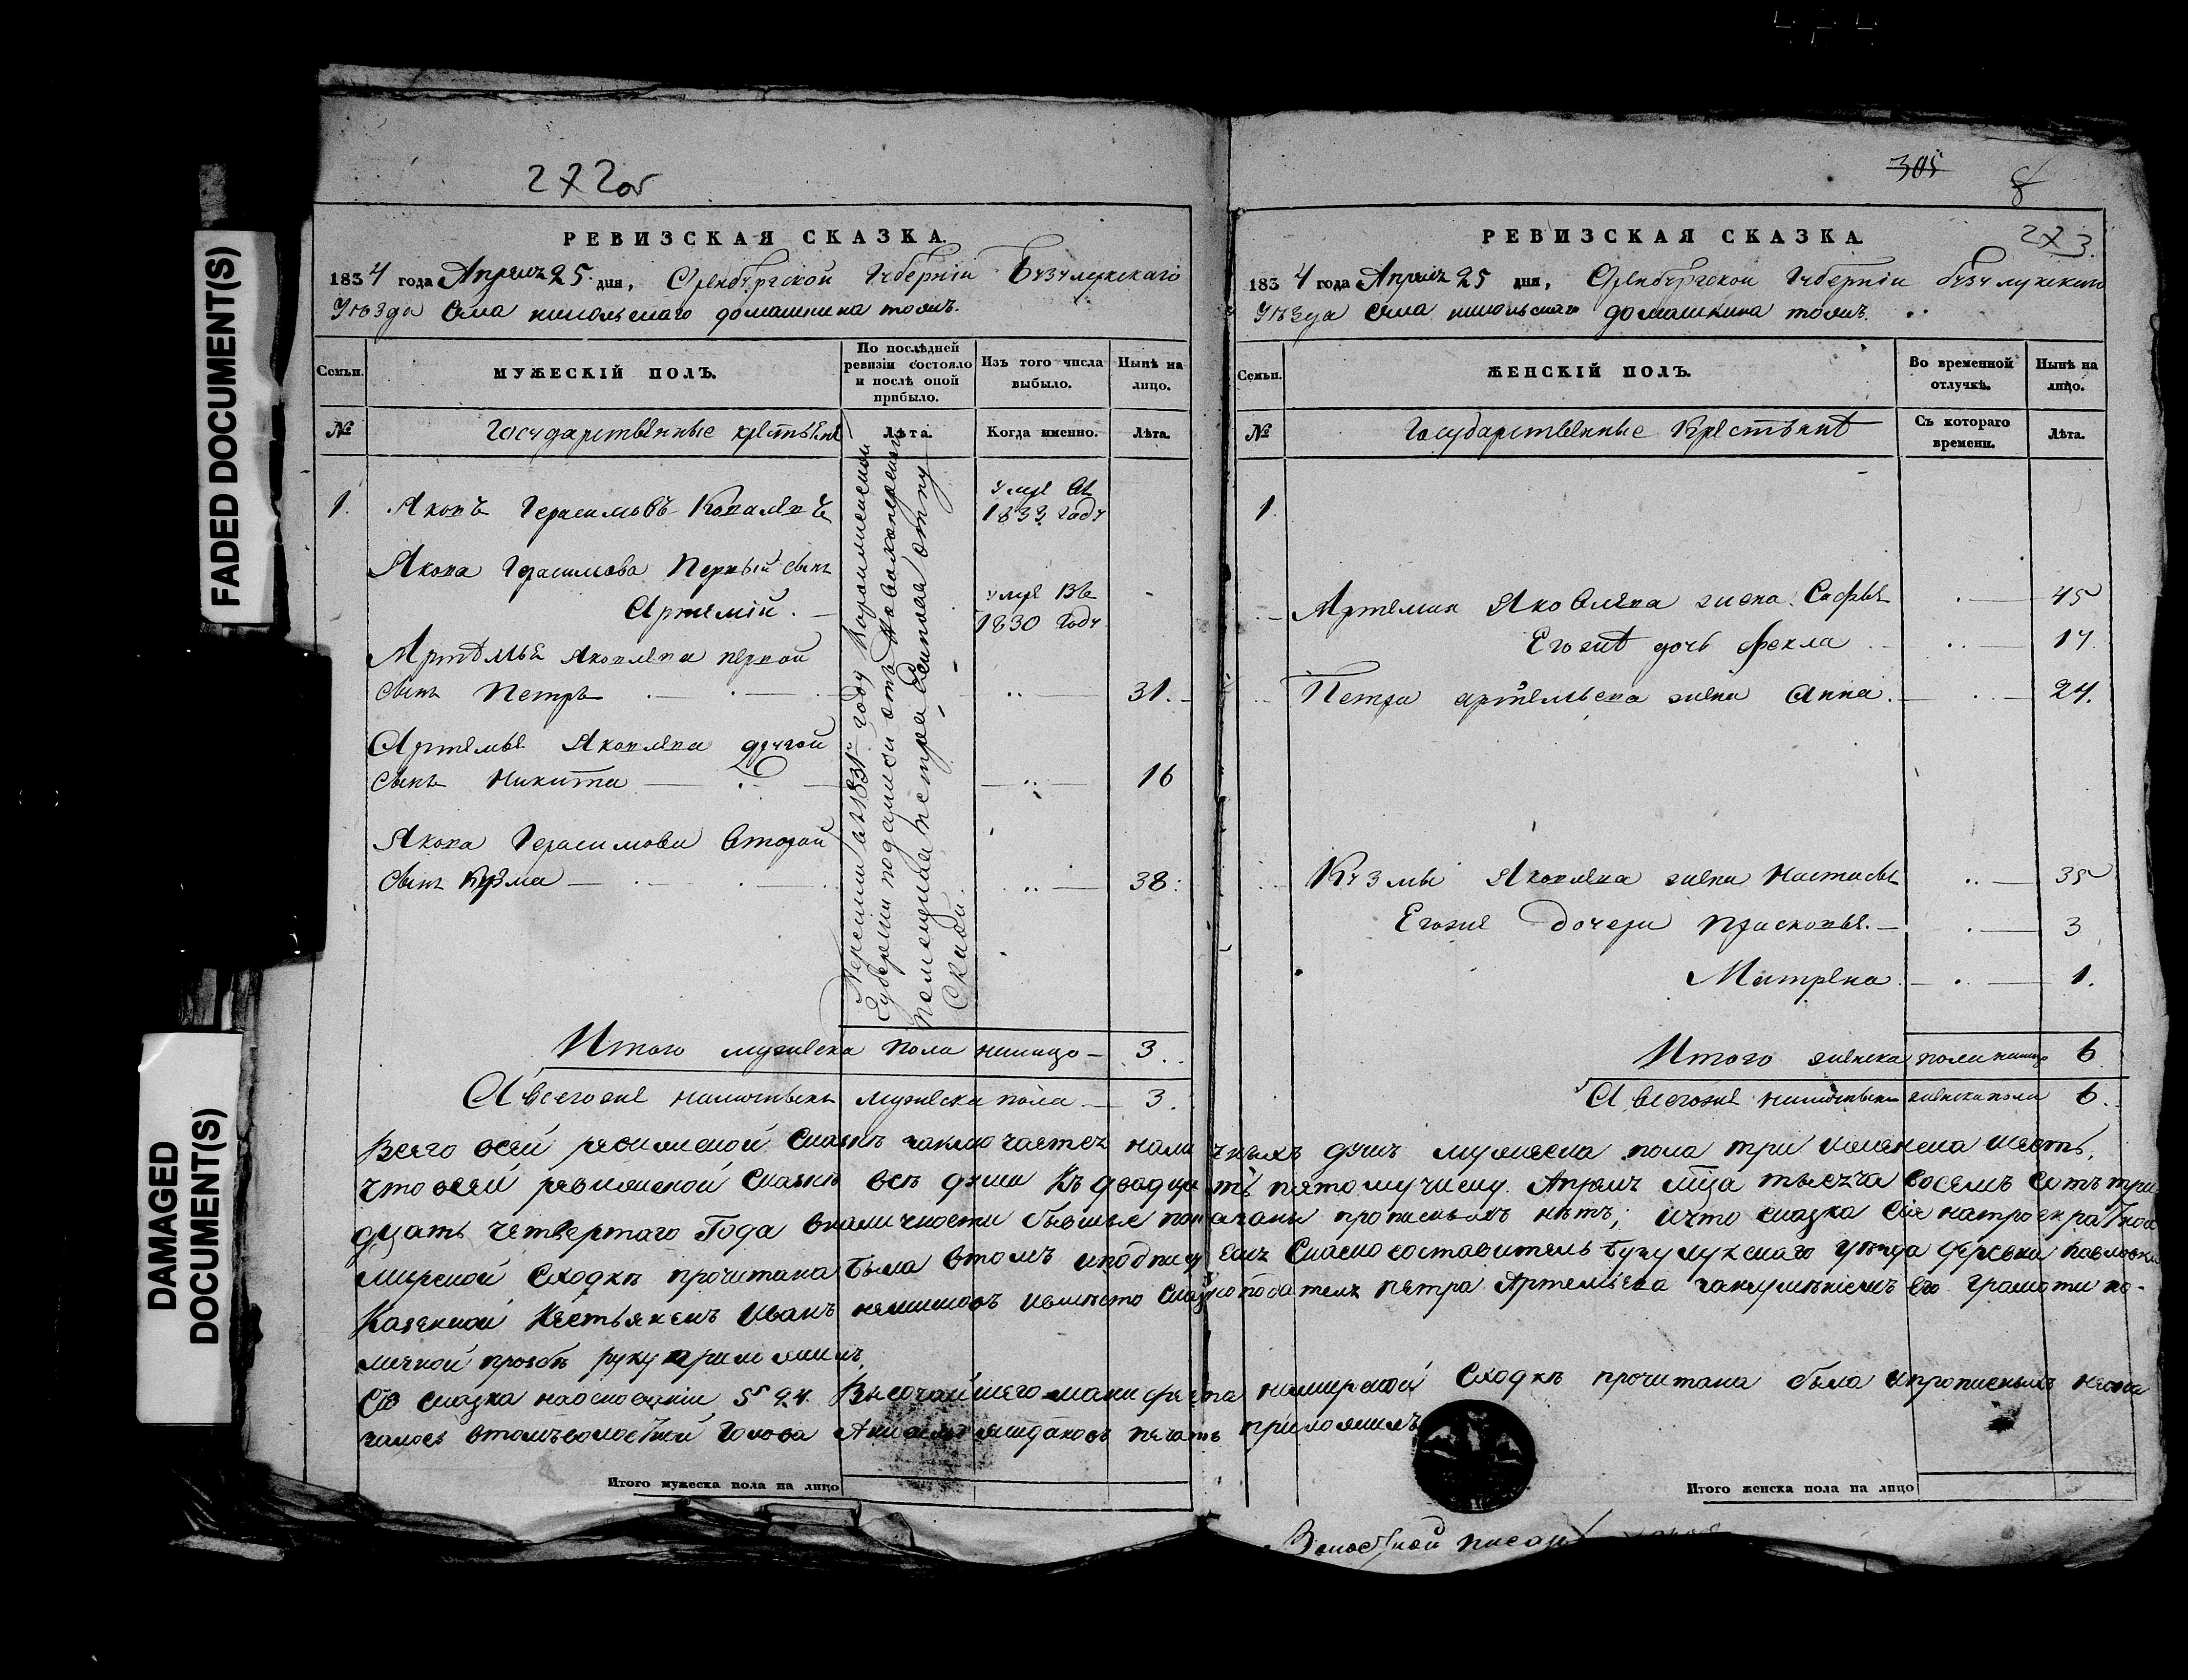 FADED DOCUMENT(S)
DAMAGED
DOCUMENT(S)
272об
РЕВИЗСКАЯ СКАЗКА.
1834 года Апреля 25 дня, Оренбургской Губернiи Бузулукскаго
Уѣзда Села никольскаго домашкина тожъ.
Семьи.
МУЖЕСКІЙ ПОЛЪ.
По послѣдней ревизіи состояло и послѣ оной прибыло.
Изъ того числа выбыло.
Нынѣ на лицо.
№
Государственные крестьяне
Лѣта.
Когда именно.
Лѣта.
1. Яковъ Герасимовъ
умре въ 1833 году
Якова Герасимова Первый сынъ
Артемiй.
умре въ 1830 году
Артемья Яковлева первой
сынъ Петръ 31.
Артемья Яковлева другой
сынъ Никита 16
Якова Герасимова Второй
сынъ Кузма 38.
1831 году
Губернiи
помещица
Итого мужеска пола налицо 3.
А всегоже наличныхъ мужеска пола 3.
305
8
273.
РЕВИЗСКАЯ СКАЗКА.
1834 года Апреля 25 дня, Оренбургской Губернiи бузулукскаго
Уѣзда села никольскаго домашкина тожъ.
Семьи.
ЖЕНСКІЙ ПОЛЪ.
Во временной отлучкѣ.
Нынѣ на лицо.
№
Государственные Крестьянѣ
Съ котораго времени.
Лѣта.
1
Артемия Яковлева жена Софья 45
Егожѣ дочь Фекла 17.
Петра артемьева жена Анна. 24.
Кузмы Яковлева жена Настасья 35
Егоже Дочери Прасковья. 3
Матрена 1.
Итого женска пола налицо 6
А всегоже наличныхъ женска пола 6.
Всего всей ревижской Сказкѣ заключается наличныхъ душъ мужеска пола три женска шесть,
что всей ревижской Сказкѣ всѣ души Къ двадцать пятому числу Апреля мца тысяча восемь сотъ три
дцать четвертаго Года вналичности бывшые показаны прописныхъ нѣтъ; ичто сказка сiя
мирской Сходкѣ прочитана была втомъ иподпису составитель Бузулукскаго уѣзда деревни
Казенной Крестьянинъ Иванъ ивместо Петра Артемьева его грамоти по
личной прозбѣ руку приложилъ.
Сiя сказка наосновании § 24. Высочайшего манифеста намирской Сходкѣ прочитана была ипрописныхъ
втомъ волостной Голова печать приложилъ
Итого мужеска пола на лицо
Итого женска пола на лицо
Волостной писарь